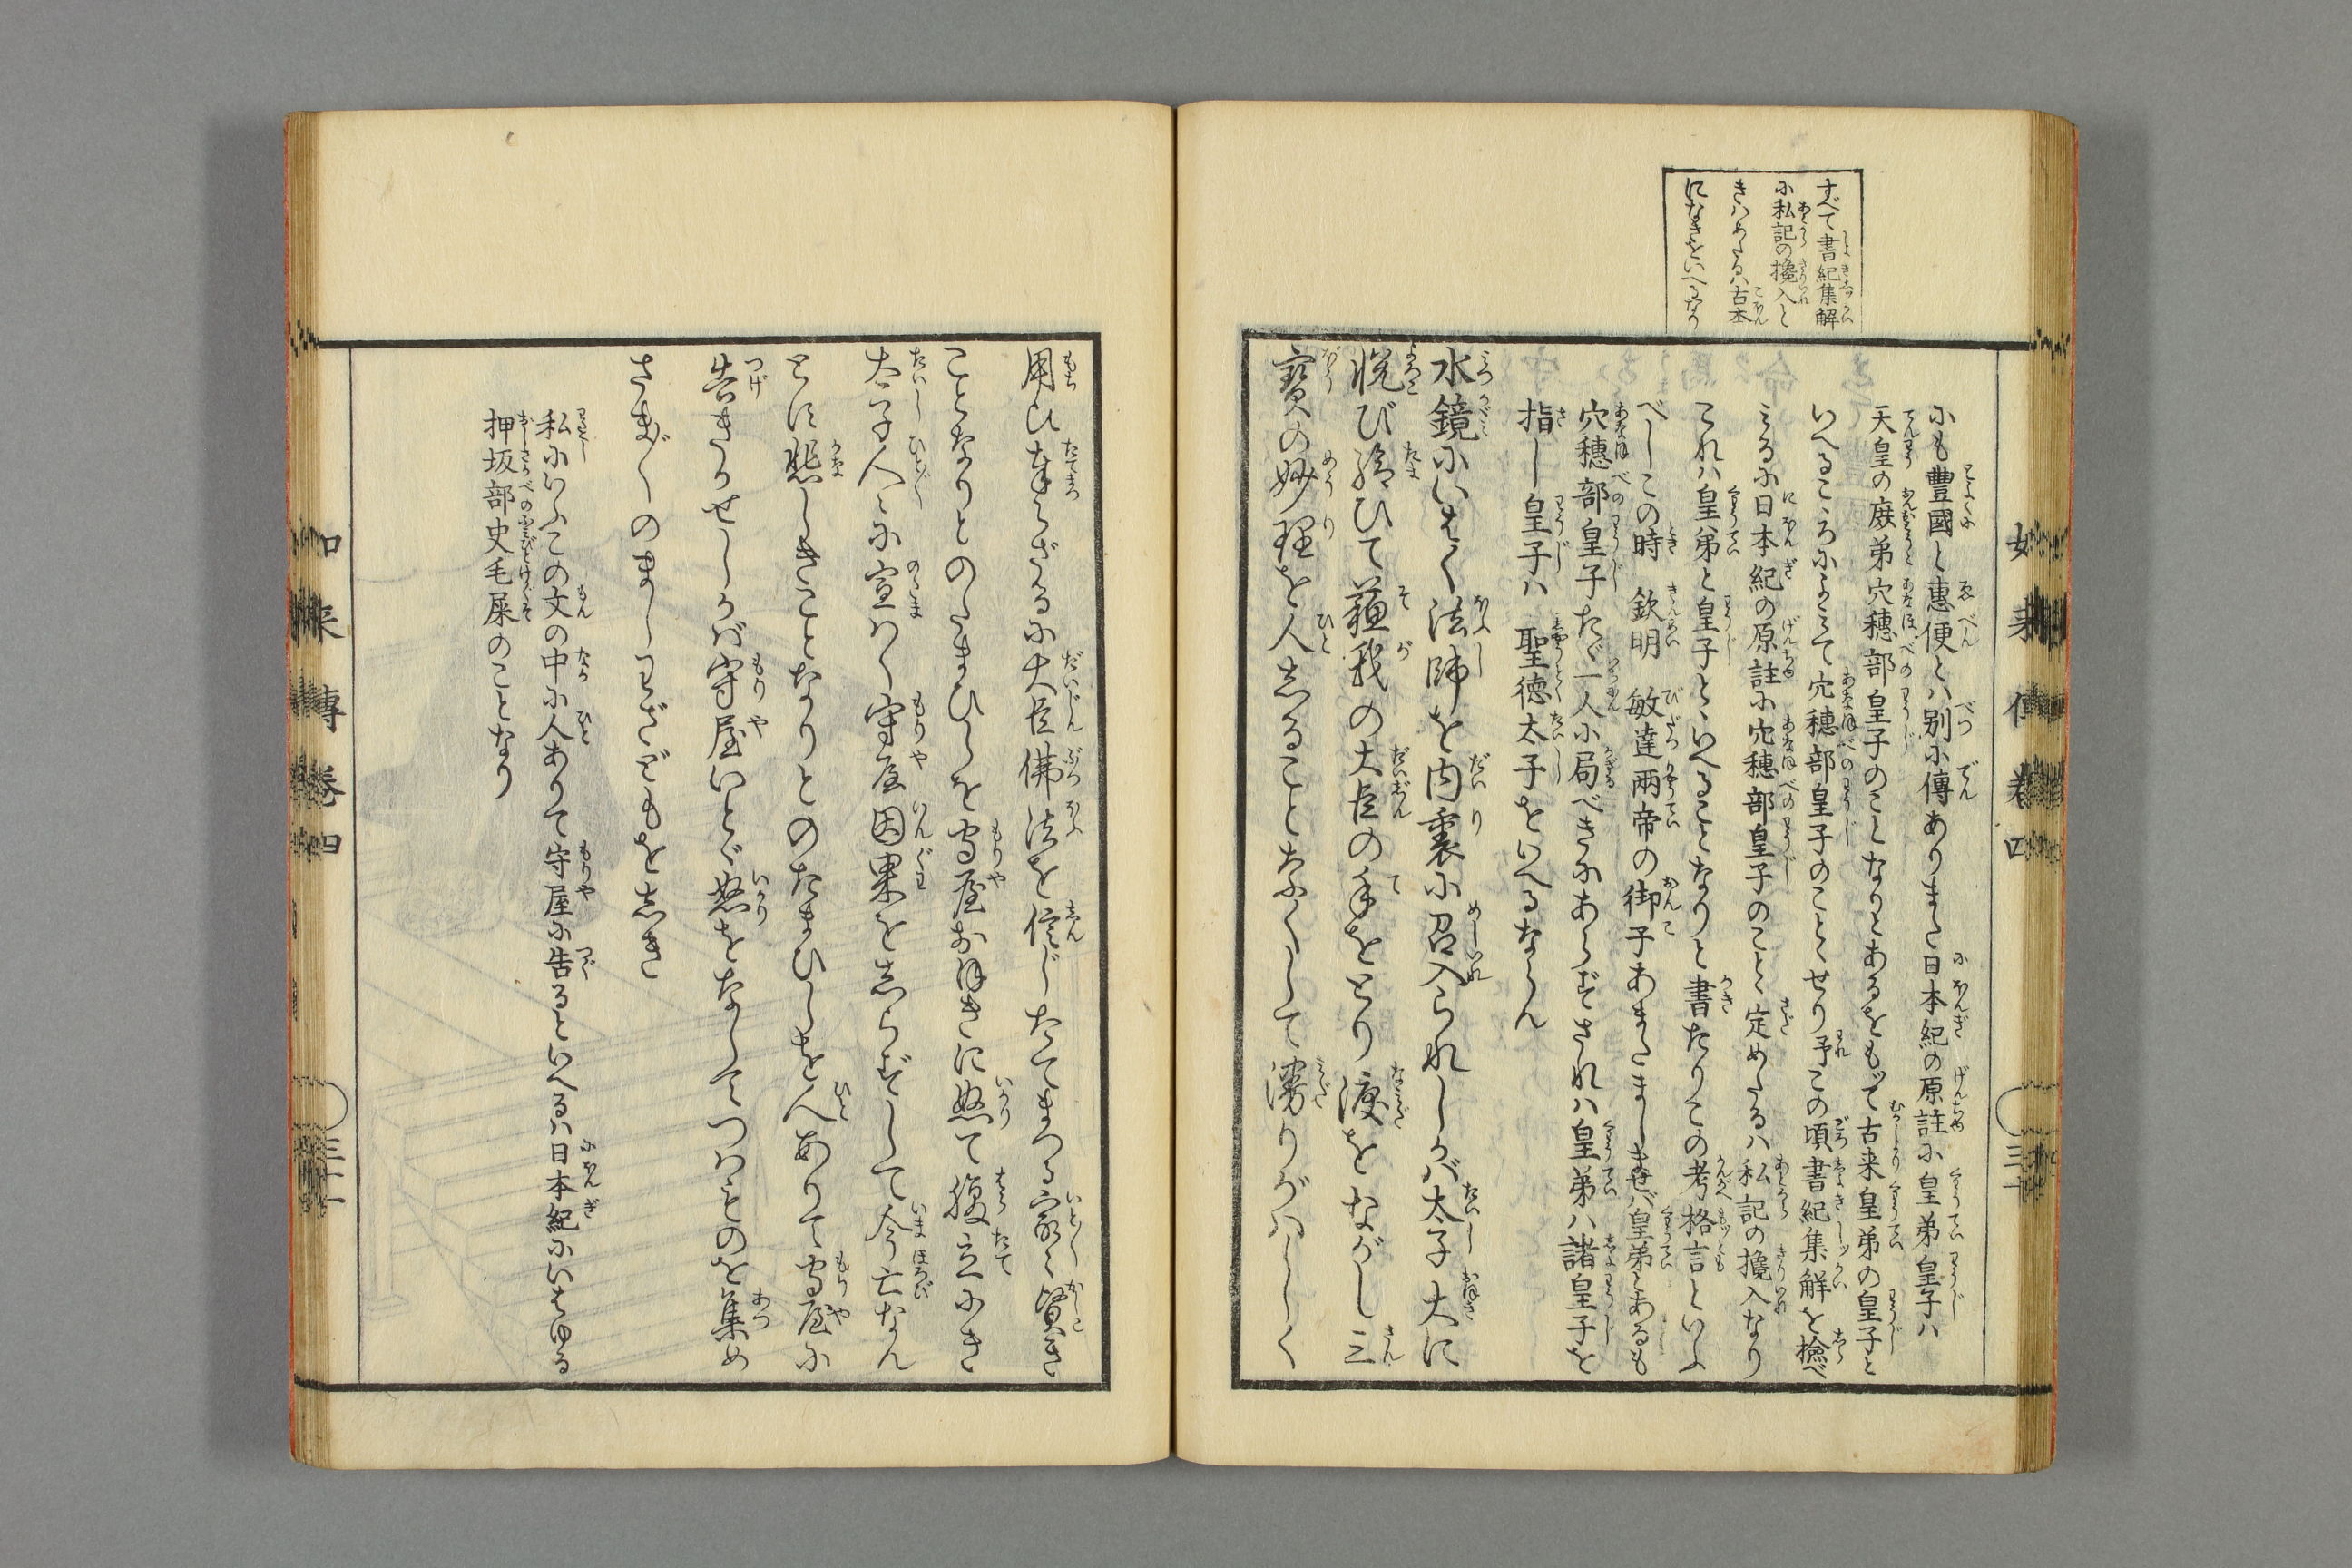 すべて書紀集解
に私記の攙入と
きハめたるハ古本
になきをいへるなり
にも豊國と惠便とハ別に傳ありまた日本紀の原註に皇弟皇子ハ
天皇の庶弟穴穗部皇子のことなりとあるをもて古来皇弟の皇子と
いへるこゝろによみて穴穗部皇子のことゝせり予この頃書紀集解を撿べ
みるに日本紀の原註に穴穗部皇子のことゝ定めたるハ私記の攙入なり
これハ皇弟と皇子とゝいへることなりと書たりこの考格言といふ
べしこの時 欽明 敏達兩帝の御子あまたましませバ皇弟とあるも
穴穗部皇子たゞ一人に局べきにあらずされハ皇弟ハ諸皇子を
指し皇子ハ 聖徳太子をいへるならん
水鏡にいはく法師を内裏に召入られしかバ太子大に
悦び給ひて蘓我の大臣の手をとり涙をながし三
寳の妙理を人しることなくして濁りがハしく
用ひ奉らざるに大臣佛法を信じたてまつる家々賢き
ことなりとのたまひしを守屋おほきに怒て腹立にき
太子人々に宣ハく守屋因果をしらずして今亡なん
とに悲しきことなりとのたまひしを人ありて守屋に
告きかせしかバ守屋いとゞ怒をなしてつハものを集め
さま〴〵のましわざどもをしき
私にいふこの文の中に人ありて守屋に告るといへるハ日本紀にいはゆる
押坂部史毛屎のことなり
如来傳巻四
三十
如来傳巻四
三十一